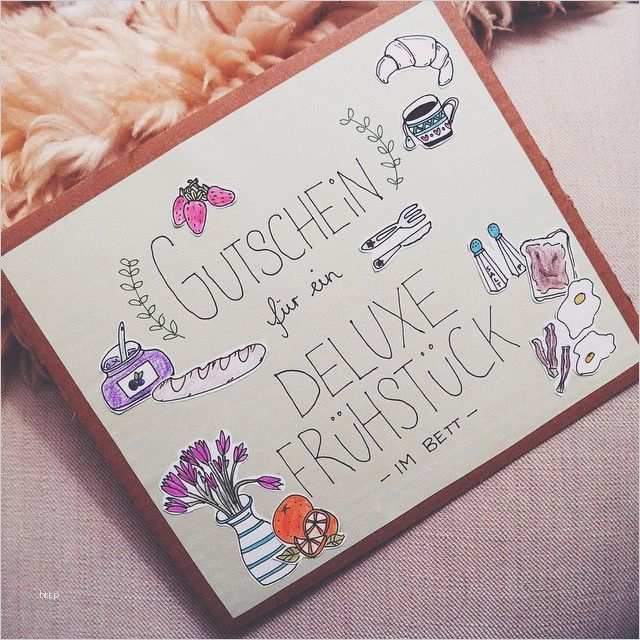 GUTSCHEiN
für ein
DELUXE
FRÜHSTÜCK
- IM BETT -
SALT